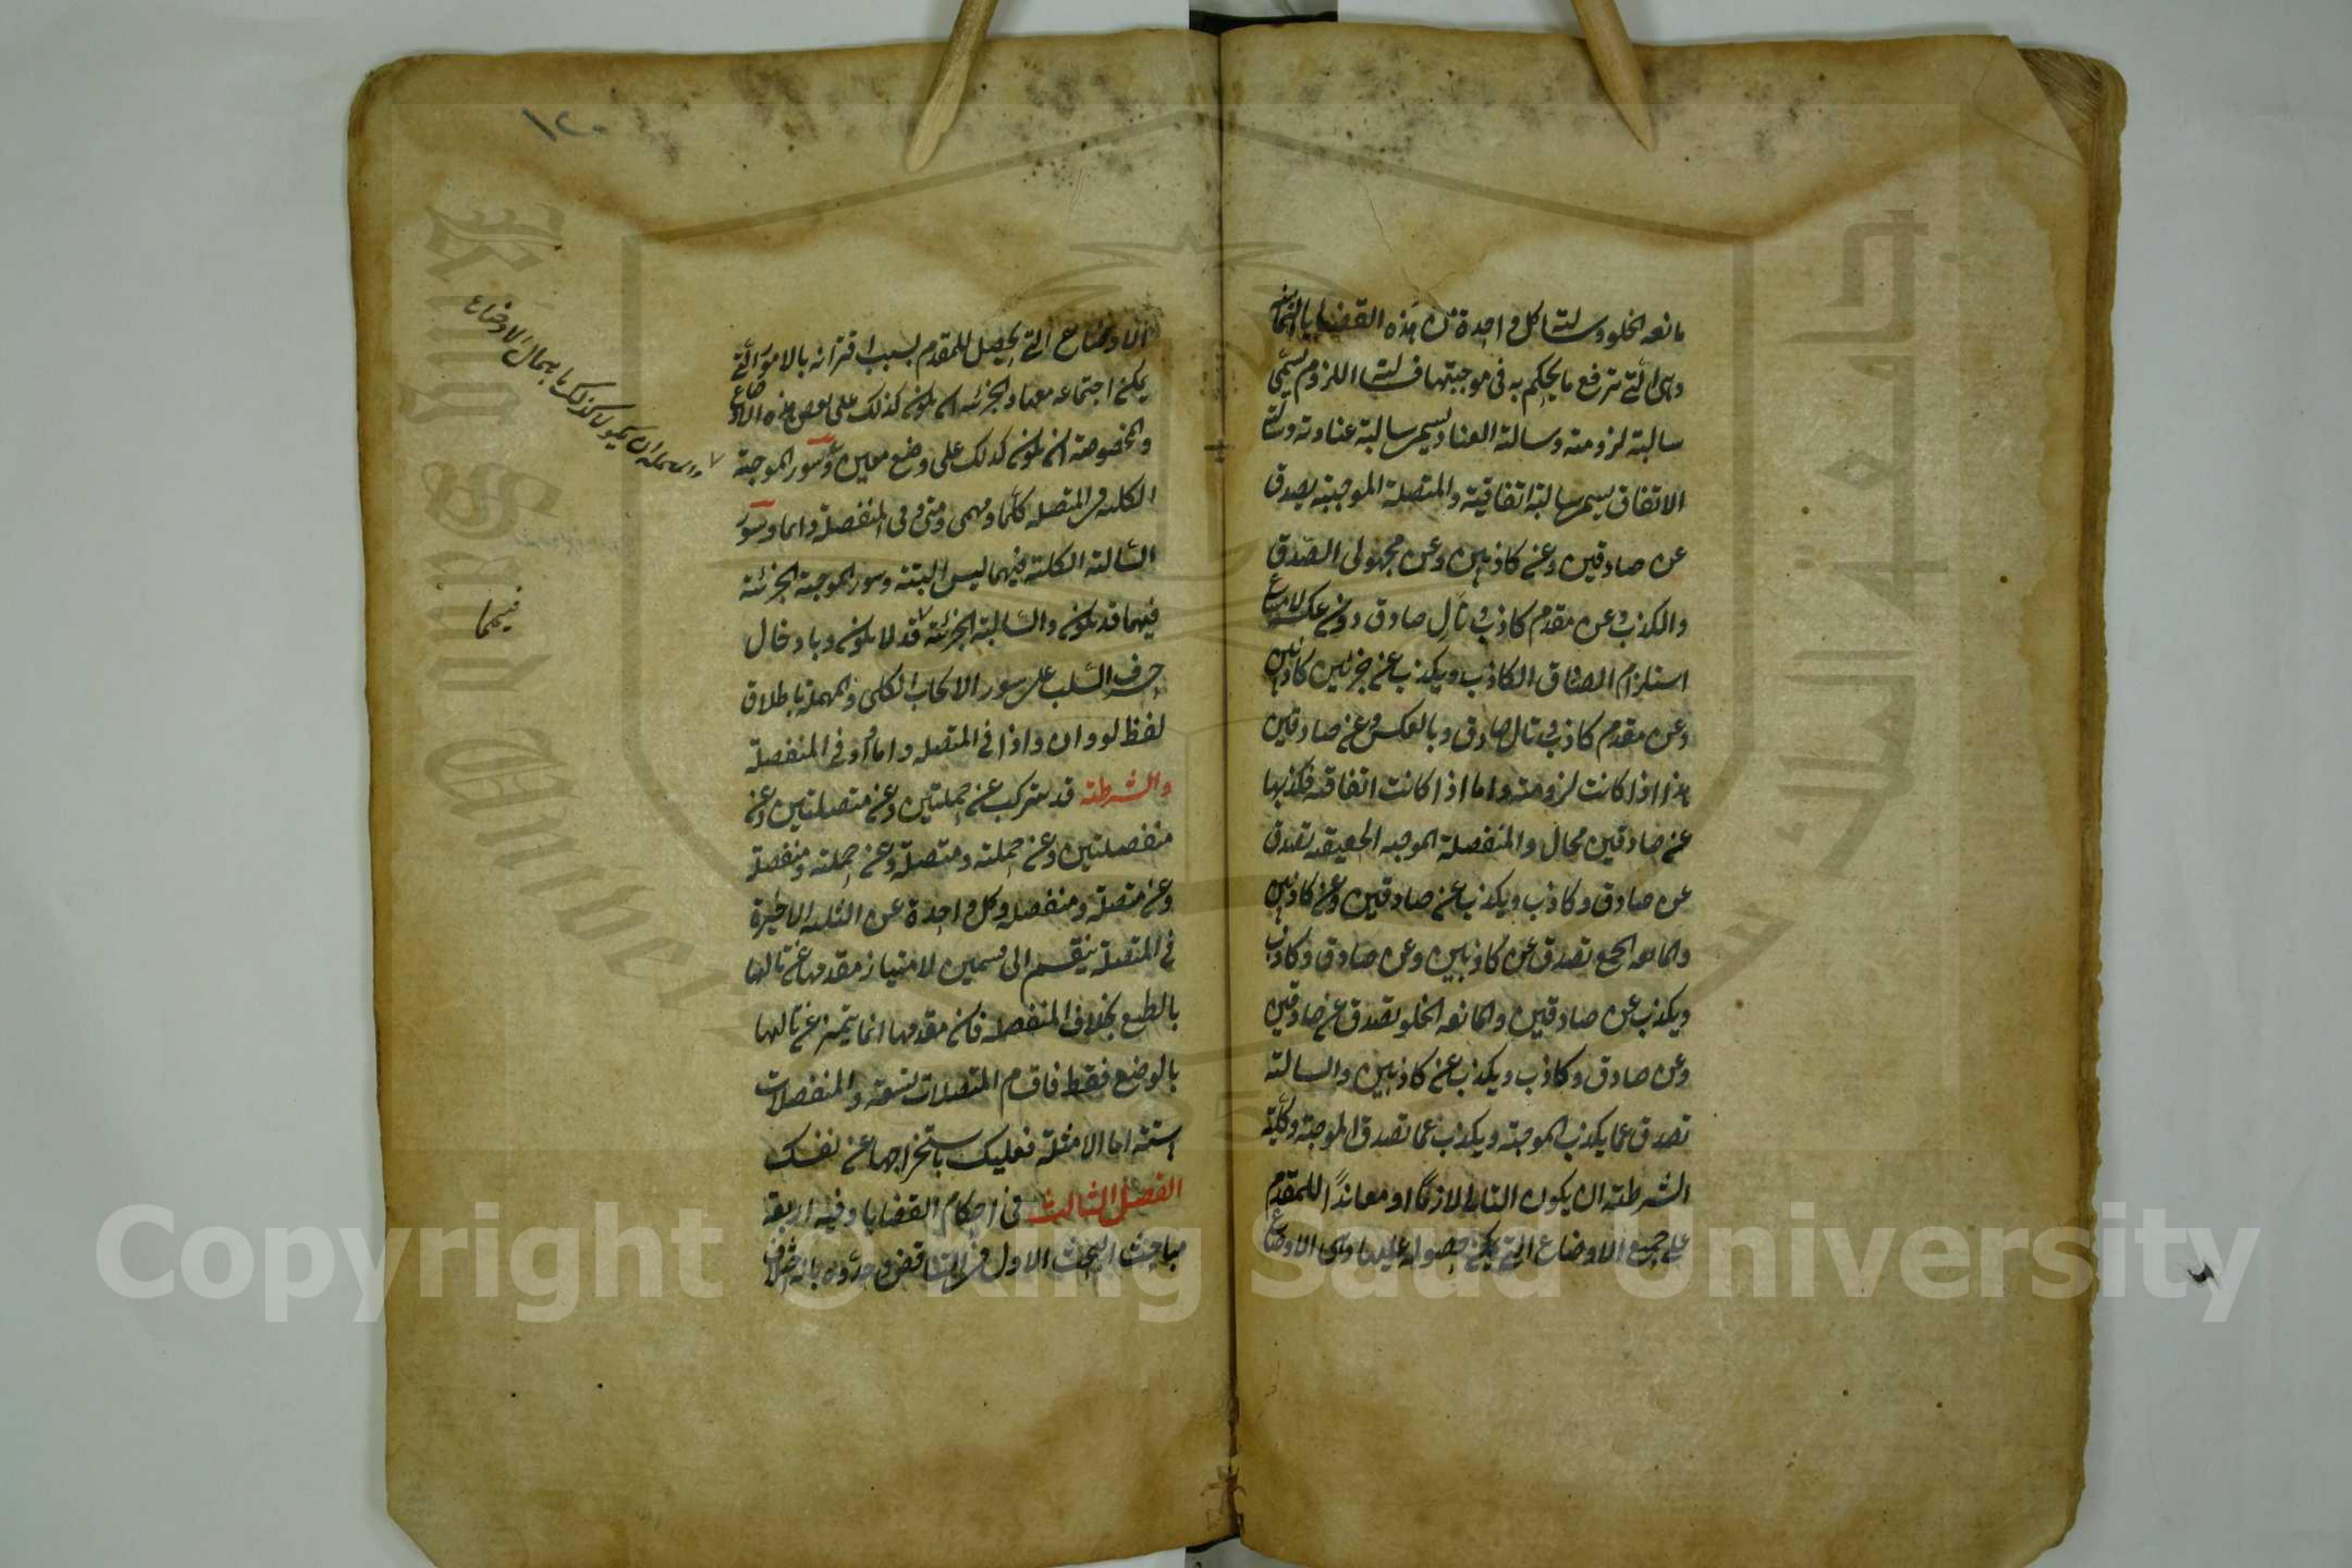 مانعة الخلو وسالبة كل واحدة من هذه القضايا الثمانية
وهى التى ترفع ما يحكم به فى موجبتها فسالبة اللزوم يسمى
سالبة لزومية وسالبة العناد يسمى سالبة عنادية وسالبة
الاتفاق يسمى سالبة اتفاقية والمتصلة الموجبة يصدق
عن صادقين وعن كاذبين وعن مجهولى الصدق
والكذب وعن مقدم كاذب وتال صادق دون عكسه لامتناع
استلزام الصادق الكاذب ويكذب عن جزئين كاذبين
وعن مقدم كاذب وتال صادق وبالعكس وعن صادقين
هذا اذا كانت لزومية واما اذا كانت اتفاقية فكذبها
عن صادقين محال والمنفصلة الموجبة الحقيقية تصدق
عن صادق وكاذب ويكذب عن صادقين وعن كاذبين
والمانعة الجمع تصدق عن كاذبين وعن صادق وكاذب
ويكذب عن صادقين والمانعة الخلو تصدق عن صادقين
وعن صادق وكاذب ويكذب عن كاذبين والسالبة
تصدق عما يكذب الموجبة ويكذب عما تصدق الموجبة وكلية
الشرطية ان يكون التالى لازما او معاندا للمقدم
على جميع الاوضاع التى يمكن حصوله عليها وهى الاوضاع
١٢٠
الاوضاع التى تحصل للمقدم بسبب اقترانه بالامور التى
يمكن اجتماعه معها والجزئية ان يكون كذلك على بعض هذه الاوضاع
والمخصوصة ان يكون كذلك على وضع معين وسور الموجبة
الكلية فى المتصلة كلما ومهما ومتى وفى المنفصلة دائما وسور
السالبة الكلية فيهما ليس البتة وسور الموجبة الجزئية
فيهما قد يكون والسالبة الجزئية قد لا يكون وبادخال
حرف السلب على سور الايجاب الكلى والمهملة باطلاق
لفظ لو وان واذا فى المتصلة واما او فى المنفصلة
والشرطية قد يتركب عن حمليتين وعن متصلتين وعن
منفصلتين وعن حملية ومتصلة وعن حملية ومنفصلة
وعن متصلة ومنفصلة وكل واحدة عن الثلثة الاخيرة
فى المتصلة ينقسم الى قسمين لامتياز مقدمها عن تاليها
بالطبع بخلاف المنفصلة فان مقدمها انما يتميز عن تاليها
بالوضع فقط فاقسام المتصلات تسعة والمنفصلات
ستة اما الامثلة فعليك باستخراجها عن نفسك
الفصل الثالث فى احكام القضايا وفيه اربعة
مباحث البحث الاول فى التناقض وحدوه بانه اختلاف
والمهملة ان يكون كذلك باهمال الاوضاع
فيهما
King Saud Univer
جامعة الملك سعود
1957
Copyright © King Saud University